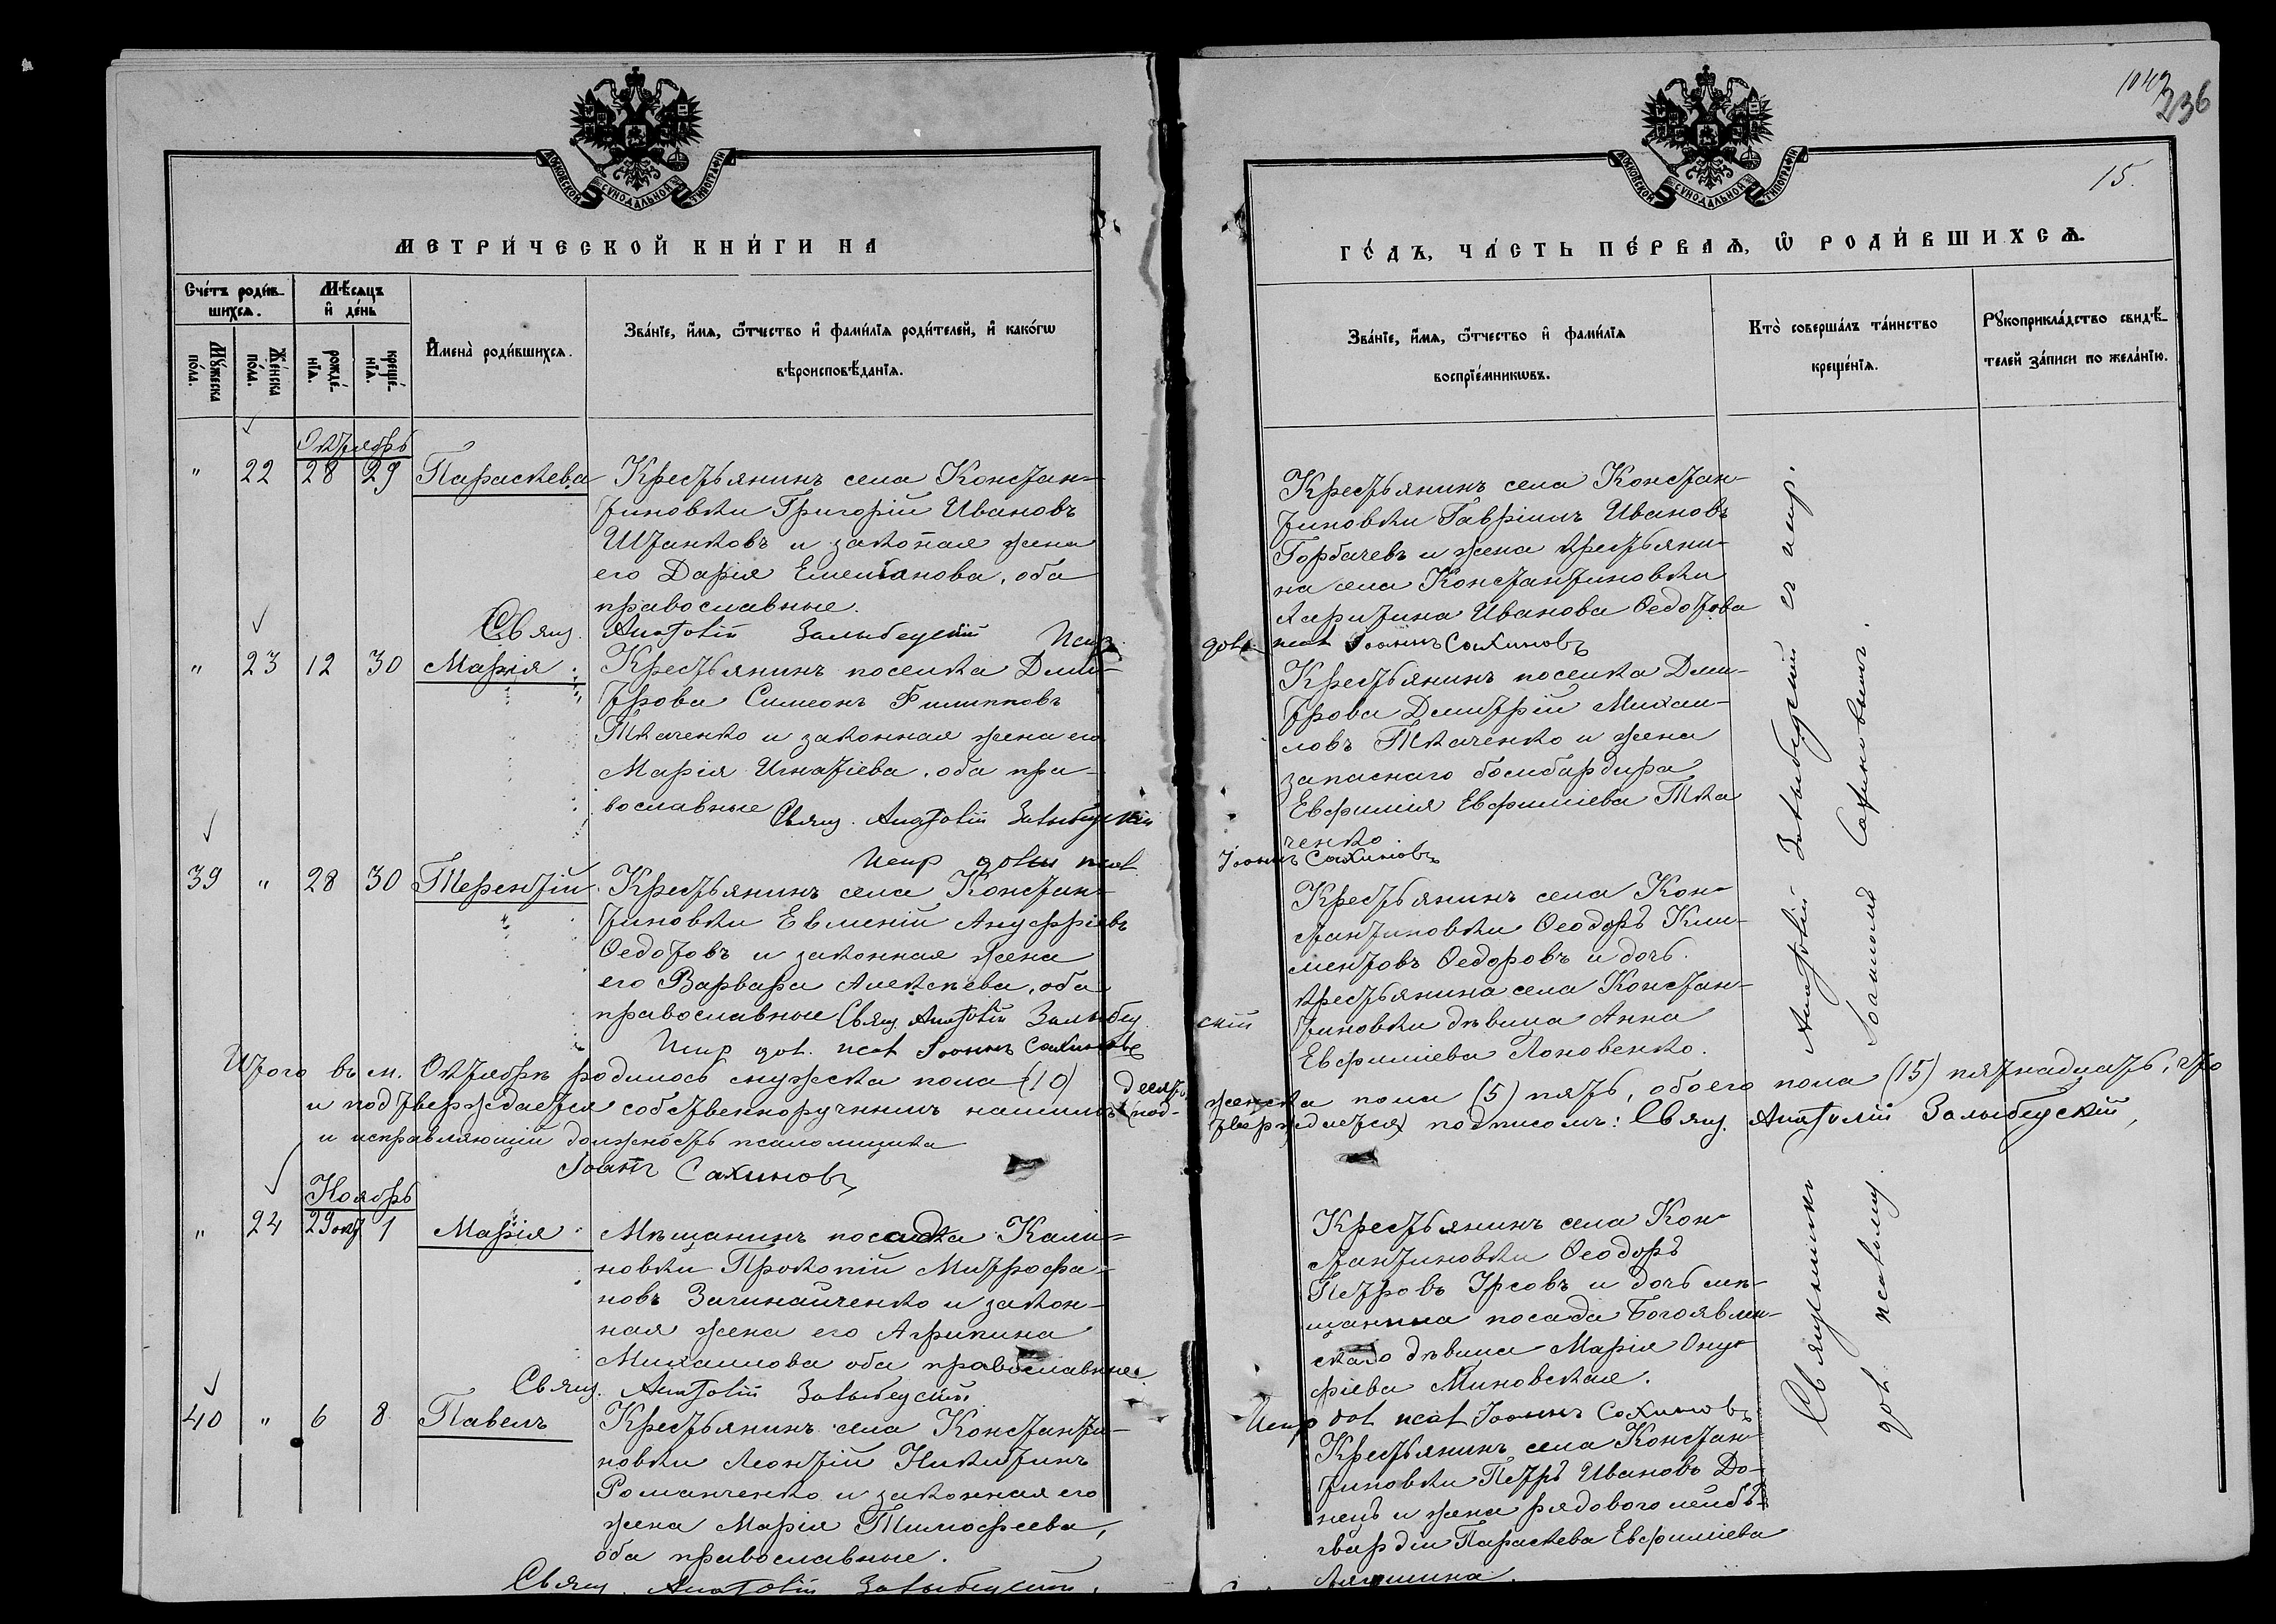 1043
236
15.
МОСКОВСКОЙ СѴНОДАЛЬНОЙ ТИПОГРАФІИ
МОСКОВСКОЙ СѴНОДАЛЬНОЙ ТИПОГРАФІИ
МЕТРИ́ЧЕСКОЙ КНИ́ГИ НА
ГО́ДЪ, ЧА́СТЬ ПЕ́РВАѦ, Ѡ҆ РОДИ́ВШИХСѦ.
Сче́тъ роди́в-
шихсѧ.
Мꙋ́жеска
по́ла.
Же́нска
по́ла.
Мѣ́сѧцъ
и҆ де́нь
рожде́-
нїѧ.
креще́-
нїѧ.
И҆мена̀ роди́вшихсѧ.
Зва́нїе, и҆́мѧ, ѻ҆́тчество и҆ фами́лїѧ роди́телей, и҆ како́гѡ
вѣроисповѣ́данїѧ.
Зва́нїе, и҆́мѧ, ѻ҆́тчество и҆ фами́лїѧ
воспрїе́мникѡвъ.
Кто̀ соверша́лъ та́инство
креще́нїѧ.
Рꙋкоприкла́дство свидѣ́-
телей за́писи по жела́нїю.
Октябрь
" 22 28 29 Параскева
Крестьянинъ села Констан-
тиновки Григорій Ивановъ
Штанковъ и законая жена
его Дарія Емельянова, оба
православные.
Свящ. Анатолій Залыбедскій Испр.
Крестьянинъ села Констан-
тиновки Гавріилъ Ивановъ
Горбачевъ и жена крестьяни-
на села Константиновки
Харитина Иванова Федотова
дол. псал Іоаннъ Сахиновъ
" 23 12 30 Марія
Крестьянинъ поселка Дми-
трова Симеонъ Филипповъ
Ткаченко и законная жена его
Марія Игнатіева, оба пра-
вославные Свящ. Анатолій Залыбедскій
Испр дол псал
Крестьянинъ поселка Дми-
трова Дмитрій Михаи-
ловъ Ткаченко и жена
запаснаго бомбардира
Евфимія Евфиміева Тка
ченко
Іоаннъ Сахиновъ
39 " 28 30 Терентій
Крестьянинъ села Констан-
тиновки Евменій Ануфріевъ
Федотовъ и законная жена
его Варвара Алексѣева, оба
православные Свящ Анатолій Залыбед
скій
Испр дол. псал Іоаннъ Сахиновъ
Крестьянинъ села Кон-
стантиновки Феодоръ Кли-
ментовъ Федоровъ и дочь
крестьянина села Констан-
тиновки дѣвица Анна
Евфиміева Лоновенко.
Итого въ м. Октябрѣ родилось мужска пола (10) десять, женска пола (5) пять, обоего пола (15) пятнадцать, что
и подтверждается собственноручнымъ нашимъ (под-
тверждается) подписомъ: Свящ. Анатолій Залыбедскій,
и исправляющій должность псаломщика
Іоаннъ Сахиновъ
Ноябрь
" 24 29 окт 1 Марія
Мѣщанинъ посадка Кали-
новки Прокопій Митрофа-
новъ Зачинайченко и закон-
ная жена его Агрипина
Михаилова оба православные.
Свящ. Анатолій Залыбедскій.
Крестьянинъ села Кон-
стантиновки Феодоръ
Петровъ Урсовъ и дочь мѣ-
щанина посада Богоявлен-
скаго дѣвица Марія Ону-
фріева Миновская.
Испр дол псал Іоаннъ Сахиновъ
40 " 6 8 Павелъ
Крестьянинъ села Константи-
новки Леонтій Никитинъ
Романченко и законная его
жена Марія Тимофеева,
оба православные.
Свящ. Анатолій Залыбедскій.
Крестьянинъ села Констан
тиновки Петръ Ивановъ До-
нецъ и жена рядового лейбъ-
гвардіи Параскева Евфиміева
Священникъ Анатолій Залыбедскій съ испр.
дол псаломщ Іоанномъ Сахиновымъ.